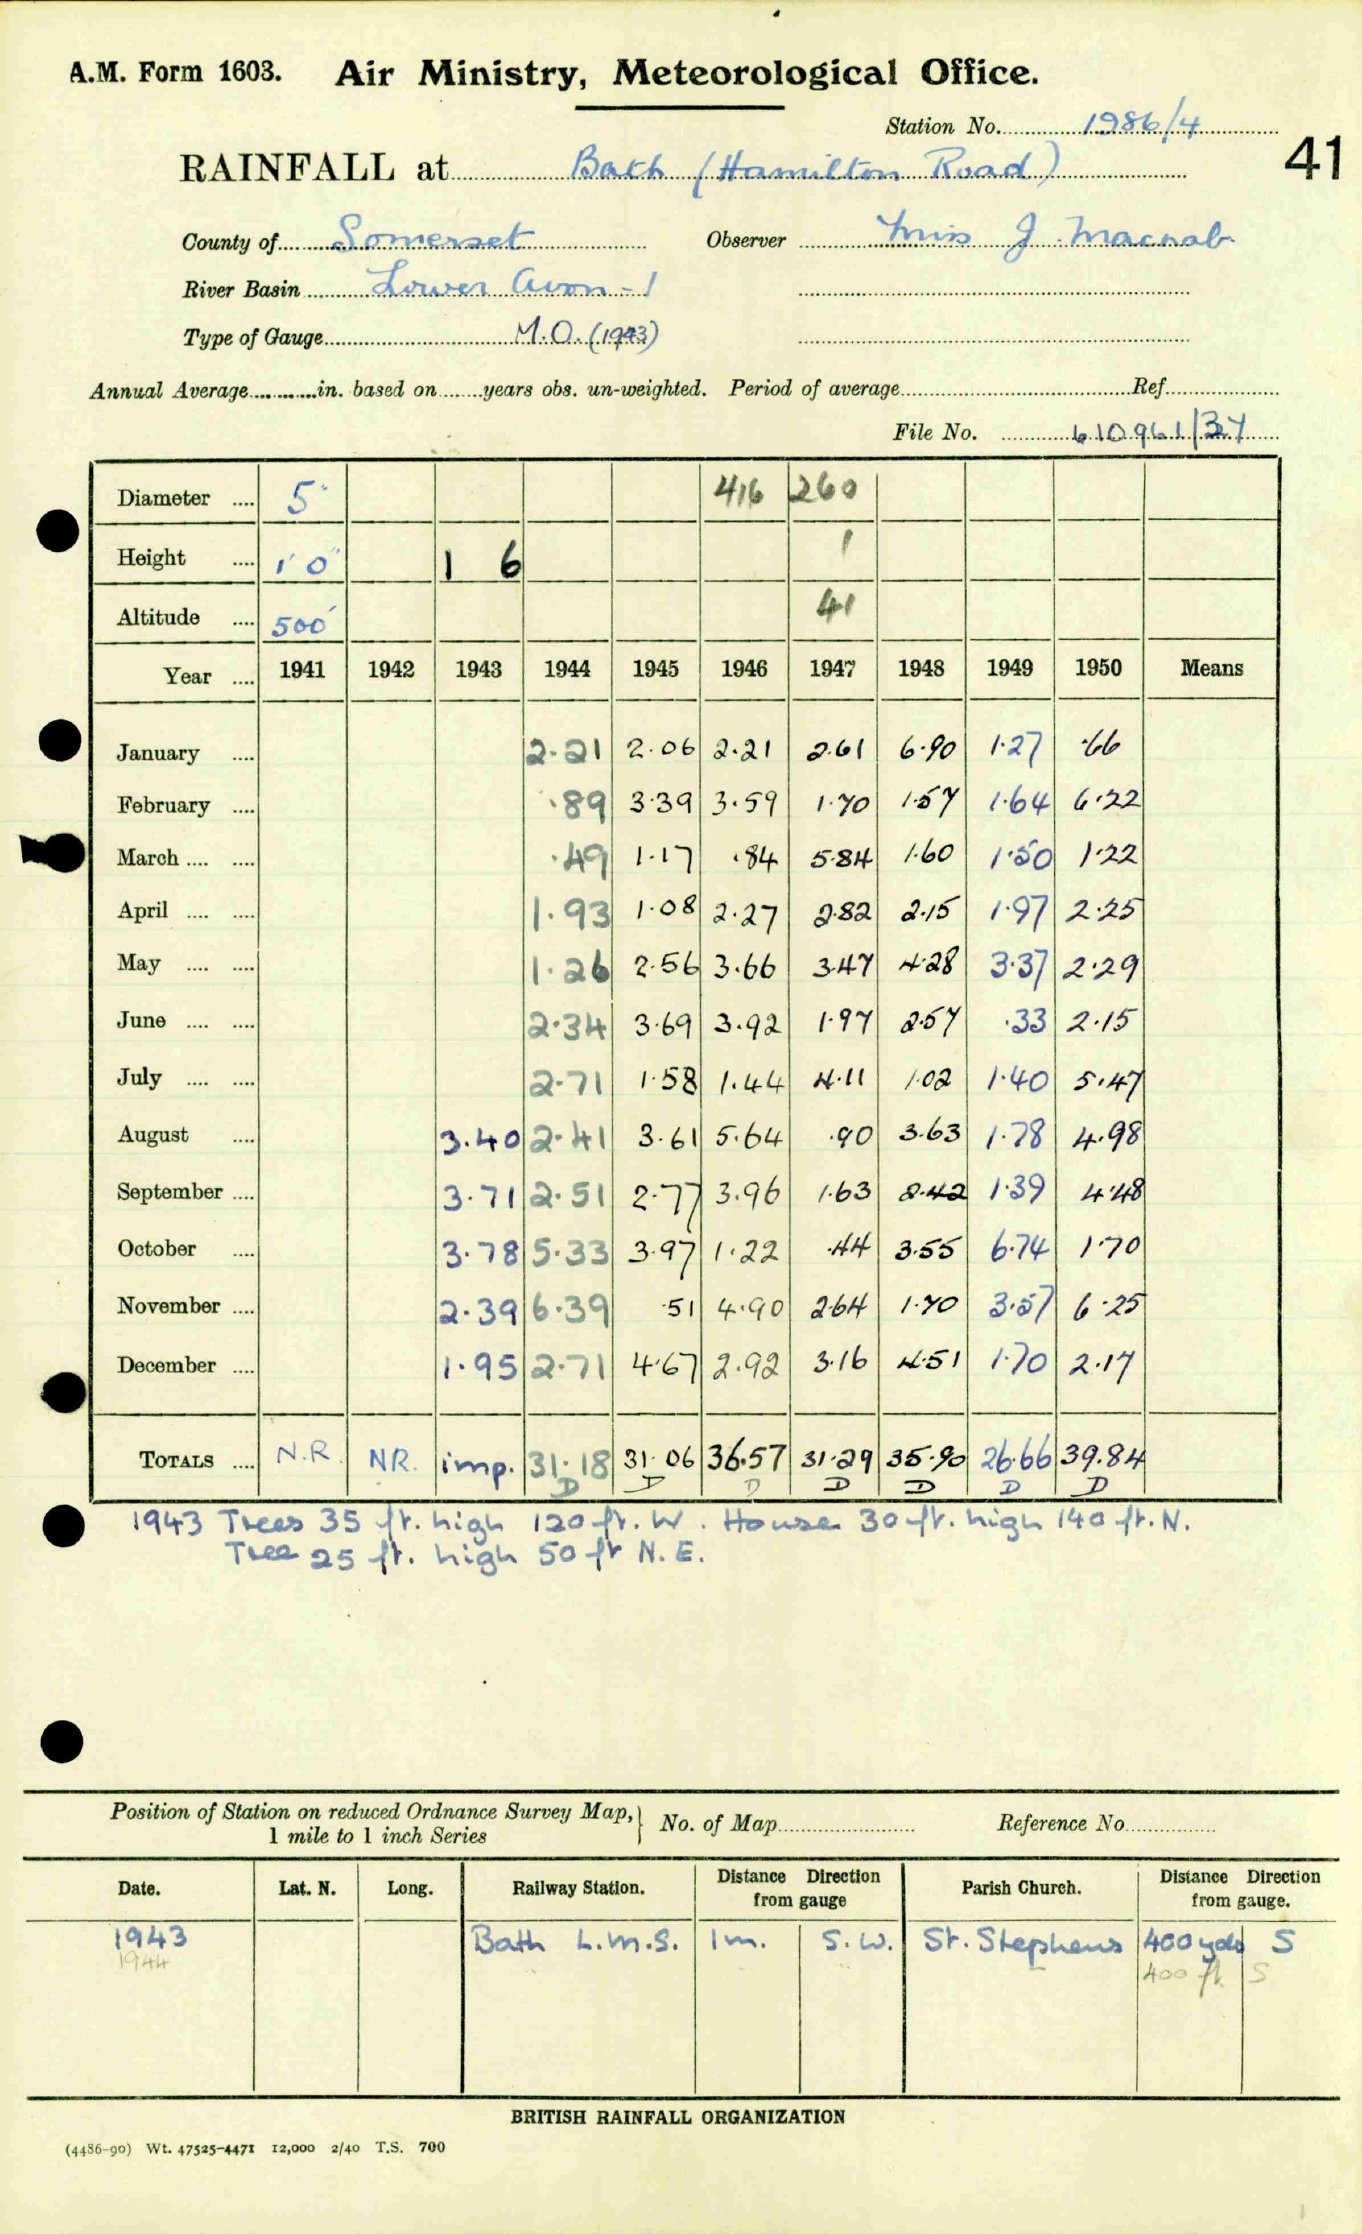 A.M. Form 1603. Air Ministry, Meteorological Office.
Station No. 1986/4
41
RAINFALL at Bath (Hamilton Road)
County of Somerset Observer Miss J. Macnab.
River Basin Lower Avon - 1
Type of Gauge M.O. (1943)
Annual Average in. based on years obs. un-weighted. Period of average Ref
File No. 610961/37
Diameter .... 5" 416 260
Height .... 1' 0" 1 6 1
Altitude .... 500' 41
Year .... 1941 1942 1943 1944 1945 1946 1947 1948 1949 1950 Means
January .... 2.21 2.06 2.21 2.61 6.90 1.27 .66
February .... .89 3.39 3.59 1.70 1.57 1.64 6.22
March .... .... .49 1.17 .84 5.84 1.60 1.50 1.22
April .... .... 1.93 1.08 2.27 2.82 2.15 1.97 2.25
May .... .... 1.26 2.56 3.66 3.47 4.28 3.37 2.29
June .... .... 2.34 3.69 3.92 1.97 2.57 .33 2.15
July .... .... 2.71 1.58 1.44 4.11 1.02 1.40 5.47
August .... 3.40 2.41 3.61 5.64 .90 3.63 1.78 4.98
September .... 3.71 2.51 2.77 3.96 1.63 2.42 1.39 4.48
October .... 3.78 5.33 3.97 1.22 .44 3.55 6.74 1.70
November .... 2.39 6.39 .51 4.90 2.64 1.70 3.57 6.25
December .... 1.95 2.71 4.67 2.92 3.16 4.51 1.70 2.17
TOTALS .... N.R. N.R. imp. 31.18 31.06 36.57 31.29 35.90 26.66 39.84
D D D D D D D
1943 Trees 35 ft. high 120 ft. W. House 30 ft. high 140 ft. N.
Tree 25 ft. high 50 ft N.E.
Position of Station on reduced Ordnance Survey Map, } No. of Map Reference No
1 mile to 1 inch Series
Date. Lat. N. Long. Railway Station. Distance Direction from gauge Parish Church. Distance Direction from gauge.
1943 Bath L.M.S. 1 m. S.W. St. Stephens 400 yds S
1944 400 ft S
BRITISH RAINFALL ORGANIZATION
(4486-90) Wt. 47525-4471 12,000 2/40 T.S. 700